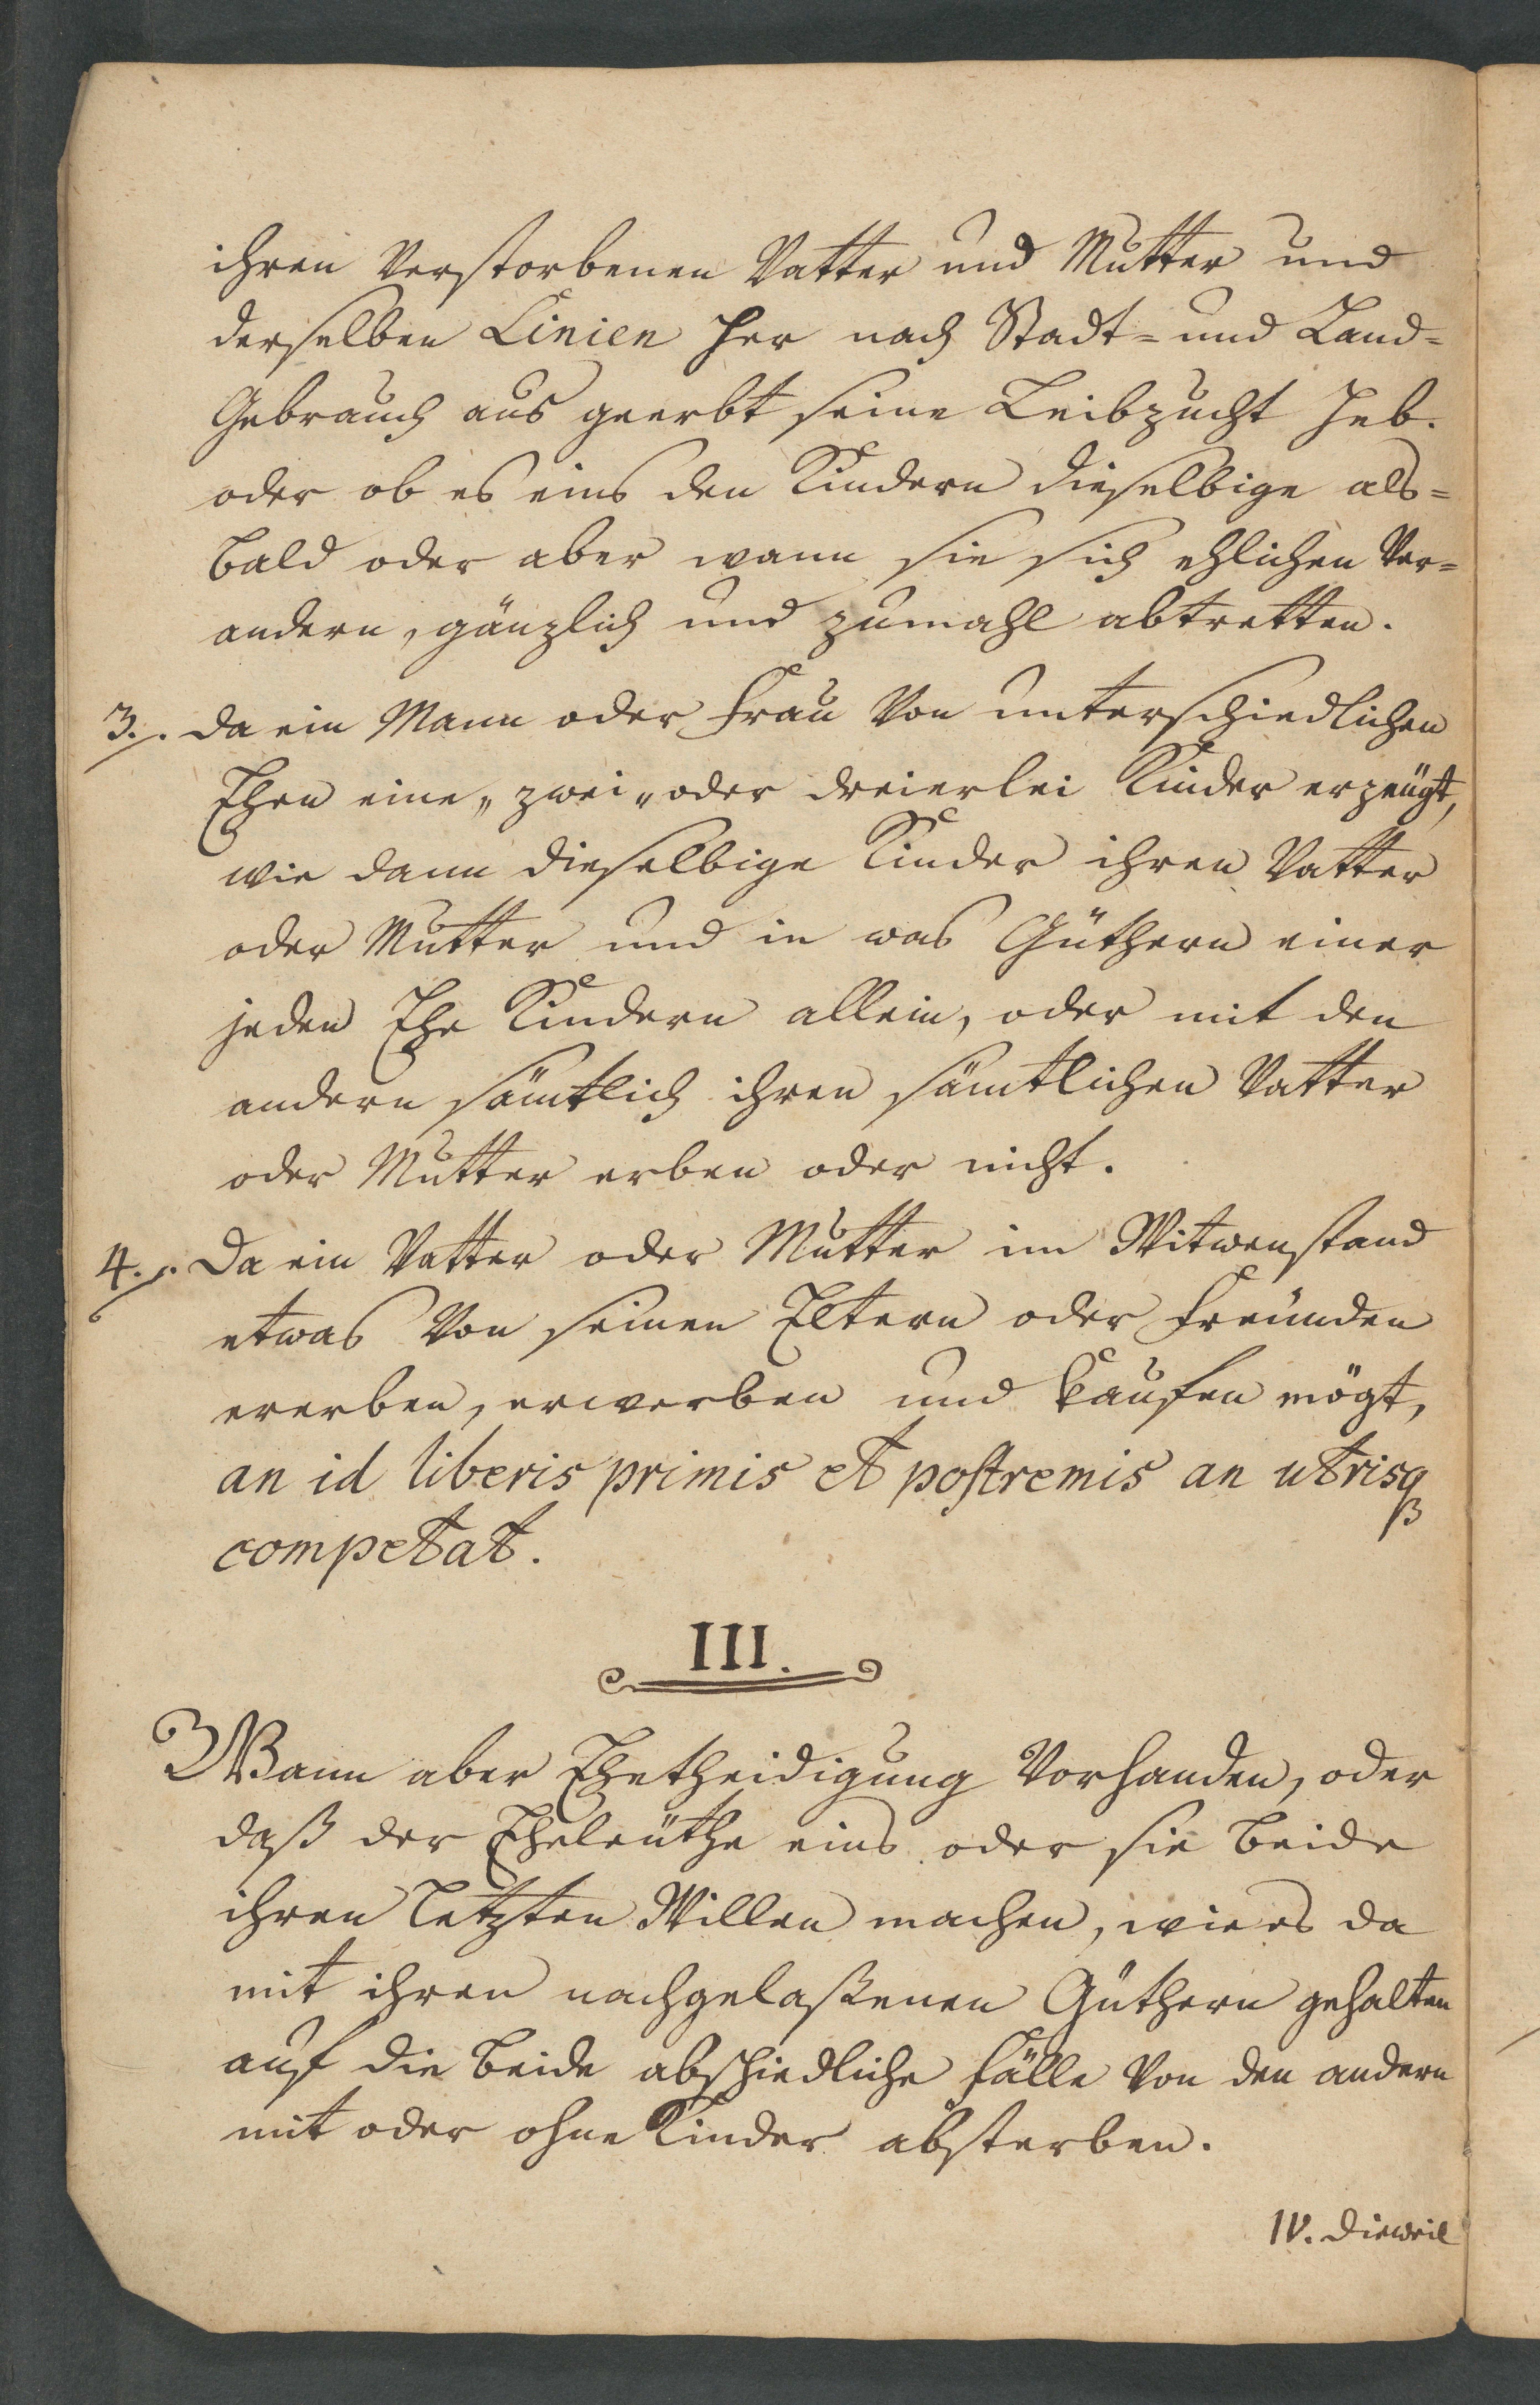 ihren verstorbenen Vatter und Mutter und
derselben Linien her nach Stadt= und Land=
Gebrauch aus geerbt seine Leibzucht heb.
oder ob es eins den Kindern dieselbige als=
bald oder aber wann sie sich ehlichen ver=
andern, gänzlich und zumahl abtretten.
3./. da ein Mann oder Frau von unterschiedlichen
Ehen eine„ zwei„ oder dreierlei Kinder erzeügt,
wie dann dieselbige Kinder ihren Vatter
oder Mutter und in was Güthern einer
jeden Ehe Kindern allein, oder mit den
andern sämtlich ihren sämtlichen Vatter
oder Mutter erben oder nicht.
4./. Da ein Vatter oder Mutter im Witwenstand
etwas von seinen Eltern oder Freünden
ererben, erwerben und kaufen mögt,
an id liberis primis et postremis an utrisq
competat.
III.
Wann aber Ehetheidigung vorhanden, oder
daß der Eheleüthe eins oder sie beide
ihren letzten Willen machen, wie es da
mit ihren nachgelaßenen Güthern gehalten
auf die beide abschiedliche Fälle von den andern
mit oder ohne Kinder absterben.
IV. dieweil